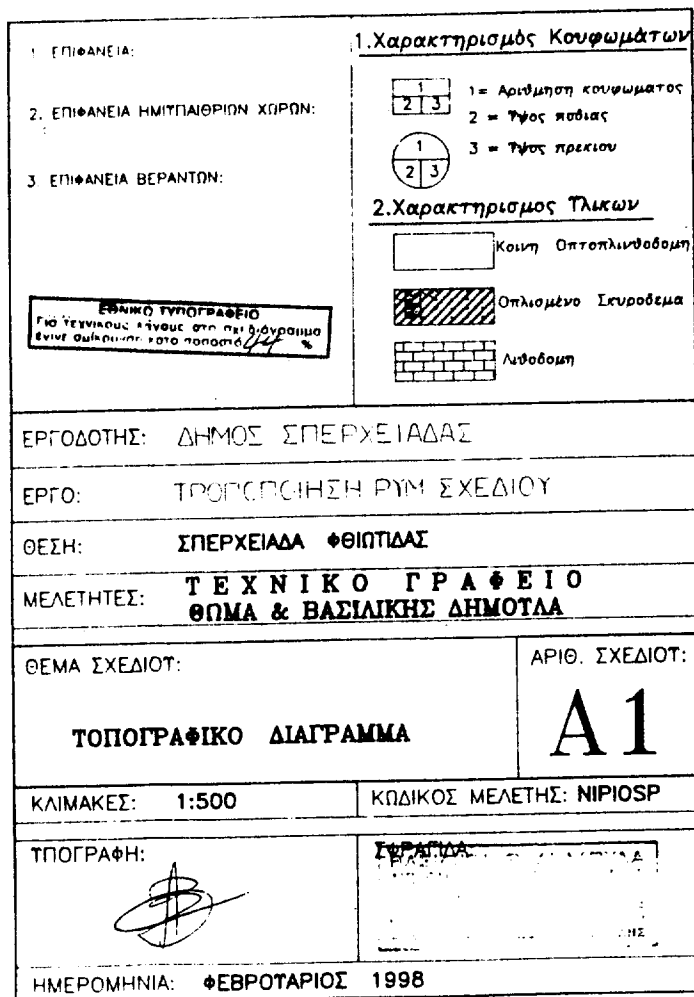 1 ΕΠΙΦΑΝΕΙΑ:
2. ΕΠΙΦΑΝΕΙΑ ΗΜΙΤΠΑΙΘΡΙΩΝ ΧΩΡΩΝ:
3 ΕΠΙΦΑΝΕΙΑ ΒΕΡΑΝΤΩΝ:
ΕΘΝΙΚΟ ΤΥΠΟΓΡΑΦΕΙΟ
Για τεχνικούς λόγους στο σχεδιάγραμμα
έγινε σμίκρυνση κατά ποσοστό 44 %
1.Χαρακτηρισμός Κουφωμάτων
1
2 3
1= Αριθμηση κουφωματος
2 = Τψος ποδιας
3 = Τψος πρεκιου
1
2 3
2.Χαρακτηρισμος Τλικων
Κοινη Οπτοπλινθοδομη
Οπλισμένο Σκυροδεμα
Λιθοδομη
ΕΡΓΟΔΟΤΗΣ: ΔΗΜΟΣ ΣΠΕΡΧΕΙΑΔΑΣ
ΕΡΓΟ: ΤΡΟΠΟΠΟΙΗΣΗ ΡΥΜ ΣΧΕΔΙΟΥ
ΘΕΣΗ: ΣΠΕΡΧΕΙΑΔΑ ΦΘΙΩΤΙΔΑΣ
ΜΕΛΕΤΗΤΕΣ: ΤΕΧΝΙΚΟ ΓΡΑΦΕΙΟ
ΘΩΜΑ & ΒΑΣΙΛΙΚΗΣ ΔΗΜΟΤΛΑ
ΘΕΜΑ ΣΧΕΔΙΟΤ:
ΤΟΠΟΓΡΑΦΙΚΟ ΔΙΑΓΡΑΜΜΑ
ΑΡΙΘ. ΣΧΕΔΙΟΤ:
A1
ΚΛΙΜΑΚΕΣ: 1:500
ΚΩΔΙΚΟΣ ΜΕΛΕΤΗΣ: NIPIOSP
ΤΠΟΓΡΑΦΗ:
ΣΦΡΑΓΙΔΑ:
ΗΜΕΡΟΜΗΝΙΑ: ΦΕΒΡΟΤΑΡΙΟΣ 1998